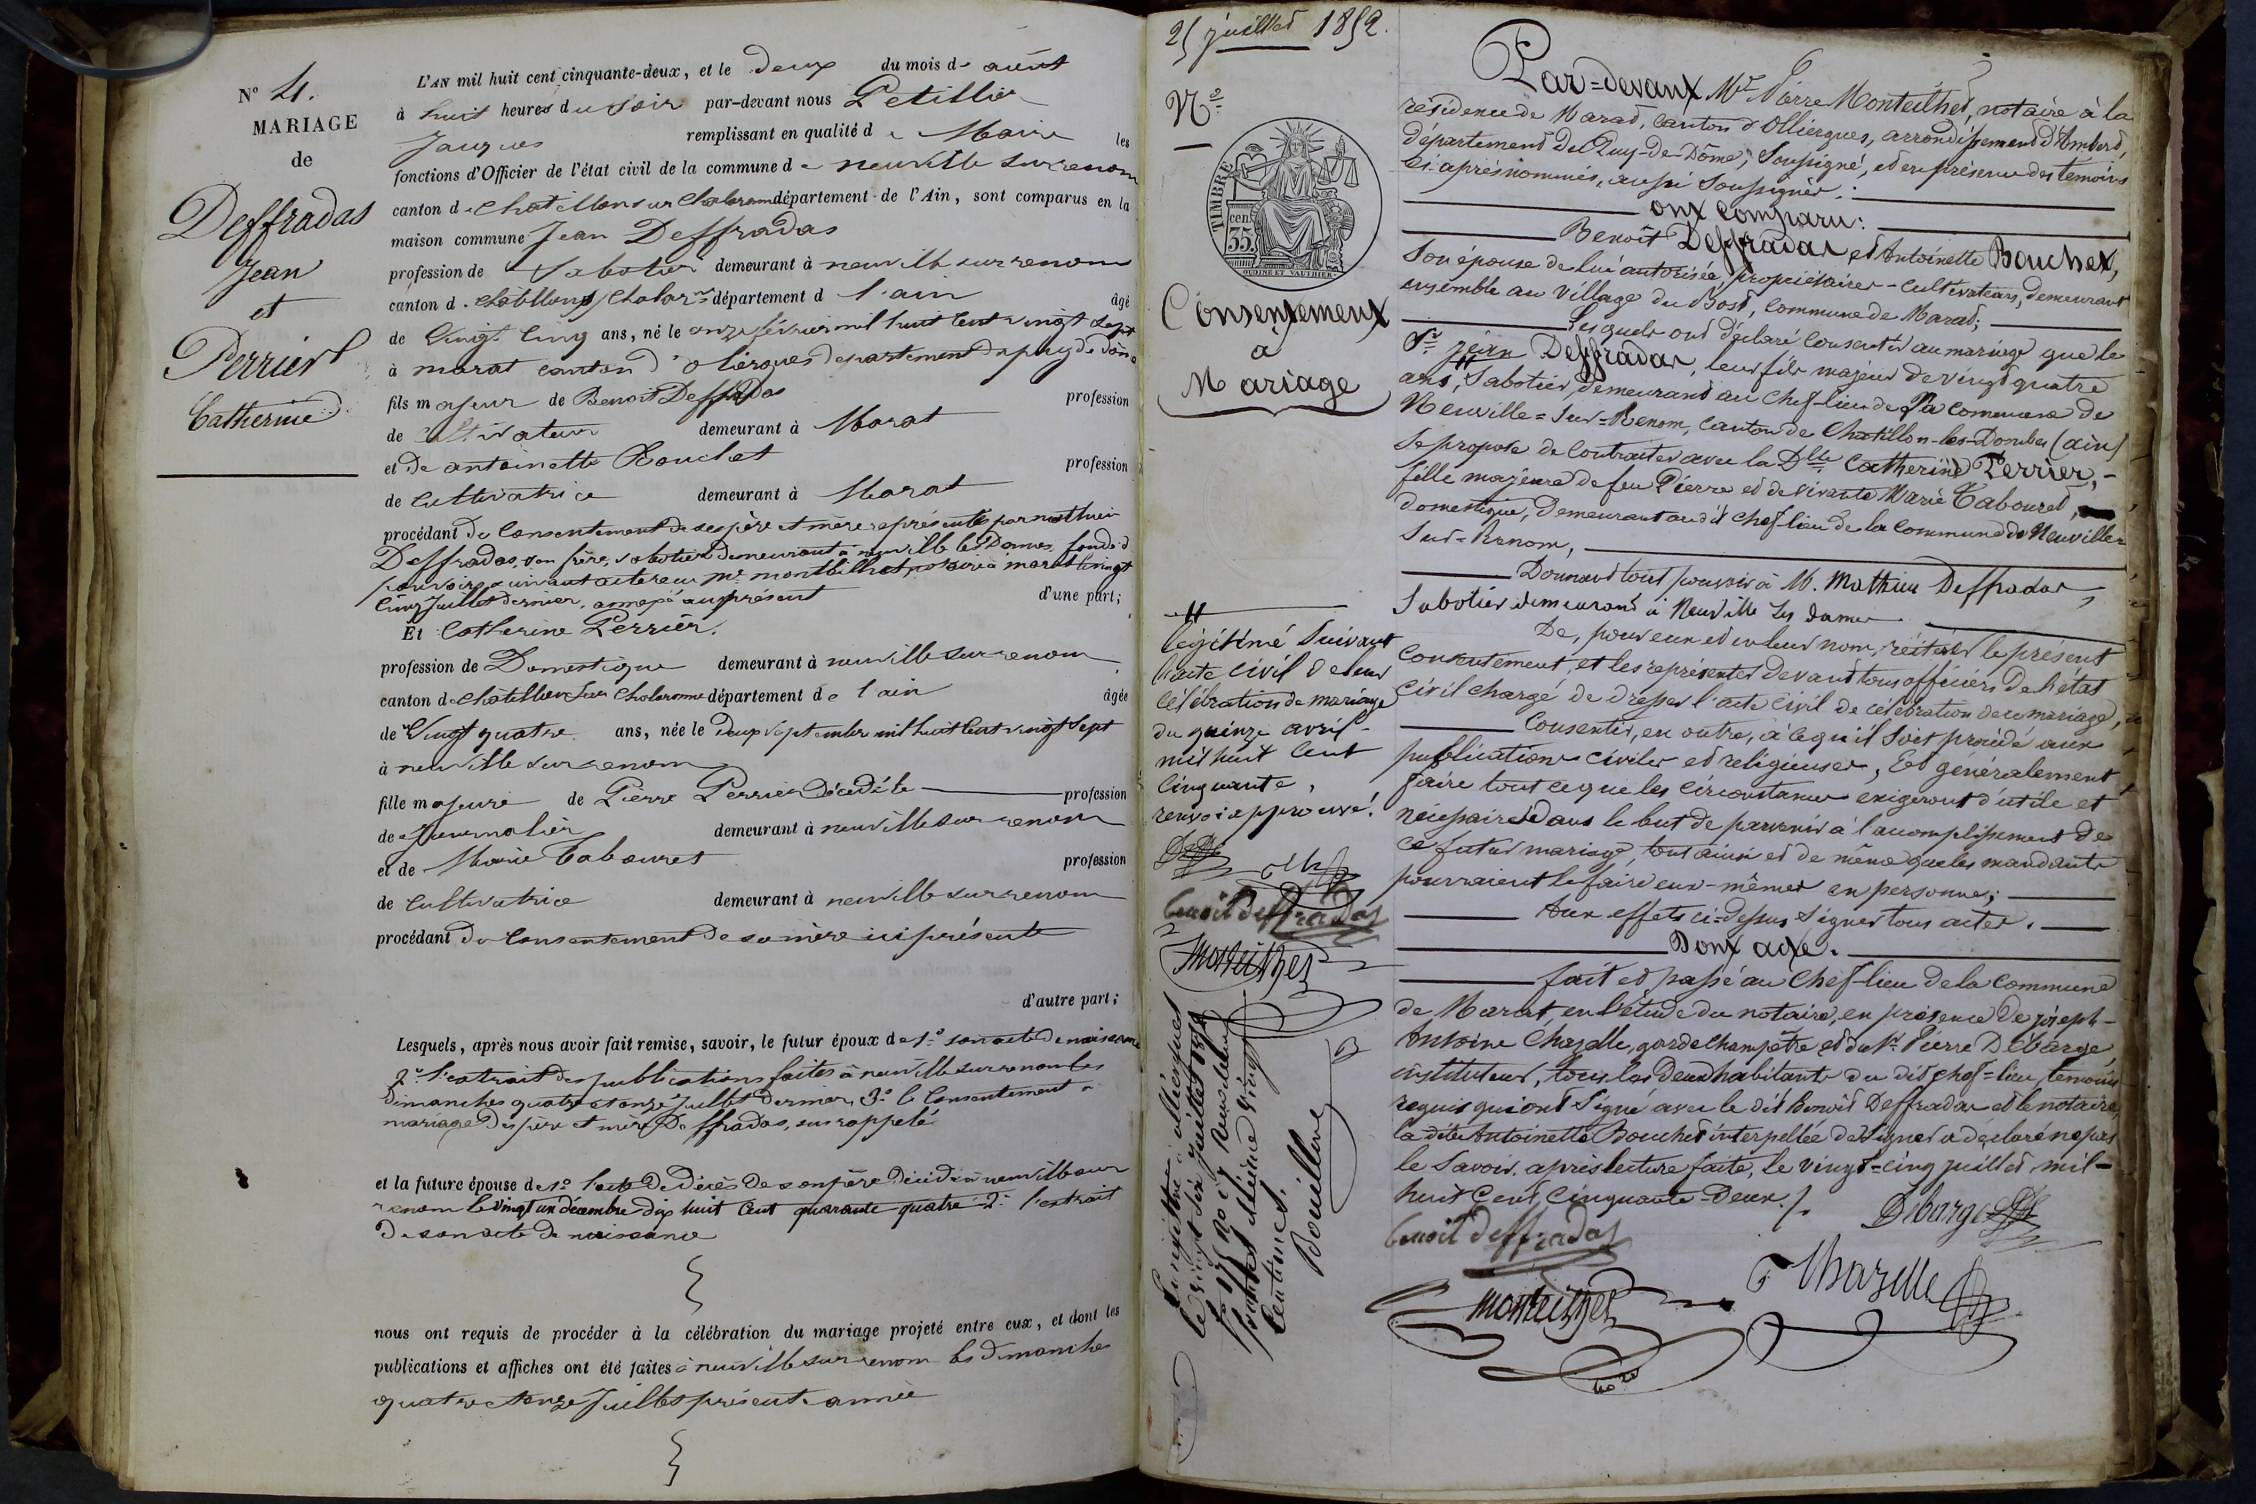 N° 4.
MARIAGE
de
Deffradas
Jean
et
Perrier
Catherine
L'AN mil huit cent cinquante-deux, et le deux du mois d'août
à huit heures du soir par-devant nous Petillier
Jacques remplissant en qualité de Maire les
fonctions d'Officier de l'état civil de la commune de neuville sur renom
canton de chatillon sur chalaronne département de l'Ain, sont comparus en la
maison commune Jean Deffradas
profession de Sabotier demeurant à neuville sur renom
canton de chatillon s/ chalarne département de l'ain âgé
de Vingt Cinq ans, né le onze février mil huit cent vingt sept
à marat canton d'oliergues département du puy de dôme
fils majeur de Benoit Deffradas profession
de cultivateur demeurant à Marat
et de antoinette Bouchet profession
de cultivatrice demeurant à Marat
procédant du consentement de ses père et mère représentés par mathieu
Deffradas, son frère, sabotier demeurant à neuville les Dames, fondé d
pouvoirs suivant acte reçu Me monteilhet, notaire à marat le vingt
cinq Juillet dernier, annexé au présent d'une part;
Et Catherine Perrier.
profession de Domestique demeurant à neuville sur renom
canton de chatillon sur chalaronne département de l'ain âgée
de Vingt quatre ans, née le Deux septembre mil huit cent vingt sept
à neuville sur renom
fille majeure de Pierre Perrier décédé le profession
de Journalier demeurant à neuville sur renom
et de Marie Tabouret profession
de cultivatrice demeurant à neuville sur renom
procédant du consentement de sa mère ici présente
d'autre part;
Lesquels, après nous avoir fait remise, savoir, le futur époux de 1° son acte de naissance
2° l'extrait des publications faites à neuville sur renom les
dimanches quatre et onze Juillet dernier, 3° le consentement à
mariage des père et mère Deffradas, sus rappelé
et la future épouse de 1° l'acte de décès de son père décédé à neuville sur
renom le vingt un décembre dix huit cent quarante quatre 2° l'extrait
de son acte de naissance
nous ont requis de procéder à la célébration du mariage projeté entre eux, et dont les
publications et affiches ont été faites à neuville sur renom les dimanches
quatre et onze Juillet présente année
25 juillet 1852.
N°
TIMBRE
35 cen.
OUDINÉ ET VAUTHIER
Consentement
à
Mariage
légitimé suivant
l'acte civil de leur
célébration de mariage
du quinze avril
mil huit cent
cinquante,
renvoi approuvé!
benoit deffradas
Monteilhet
Enregistré à olliergues
le vingt six juillet 1852
Centimes.
Bouillon
Par-devant Me Pierre Monteilhet, notaire à la
résidence de Marat, canton d'Olliergues, arrondissement d'Ambert,
département du Puy-de-Dôme, Soussigné, et en présence des témoins
ci-après nommés, aussi soussignés:
ont comparu:
Benoît Deffradas et Antoinette Bouchet,
son épouse de lui autorisée, propriétaires-cultivateurs, demeurant
ensemble au village du Bost, commune de Marat;
Lesquels ont déclaré consentir au mariage que le
Sr Jean Deffradas, leur fils majeur de vingt quatre
ans, Sabotier, demeurant au chef-lieu de la commune de
Neuville-sur-Renom, canton de Chatillon-les-Dombes (ain)
se propose de contracter avec la Dlle Catherine Perrier,
fille majeure de feu Pierre et de vivante Marie Tabouret,
domestique, demeurant au dit chef-lieu de la commune de Neuville
sur-Renom,
Donnant tout pouvoir à M. Mathieu Deffradas
Sabotier demeurant à Neuville les dames
De, pour eux et en leur nom, réitérer le présent
consentement, et les représenter devant tous officiers de l'état
civil chargé de dresser l'acte civil de célébration de ce mariage,
Consentir, en outre, à ce qu'il soit procédé aux
publications civiles et religieuses, Et généralement
faire tout ce que les circonstances exigeront d'utile et
nécessaire dans le but de parvenir à l'accomplissement de
ce futur mariage, tout ainsi et de même que les mandants
pourraient le faire eux-mêmes en personnes;
Aux effets ci-dessus signer tous actes.
Dont acte.
fait et passé au chef-lieu de la commune
de Marat, en l'étude du notaire, en présence de joseph-
Antoine Chazelle, garde champêtre et du Sr Pierre Débarge
instituteur, tous les deux habitants du dit chef-lieu, témoins
requis qui ont signé avec le dit Benoît Deffradas et le notaire,
la dite Antoinette Bouchet interpellée de signer a déclaré ne pas
le savoir, après lecture faite, le vingt-cinq juillet mil-
huit cent cinquante-deux./.
Debarge
benoit deffradas
Chazelle
Monteilhet